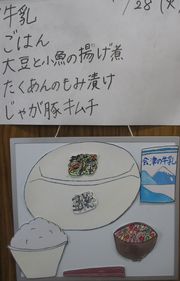 1/28 (火)
牛乳
ごはん
大豆と小魚の揚げ煮
たくあんのもみ漬け
じゃが豚キムチ
会津の牛乳